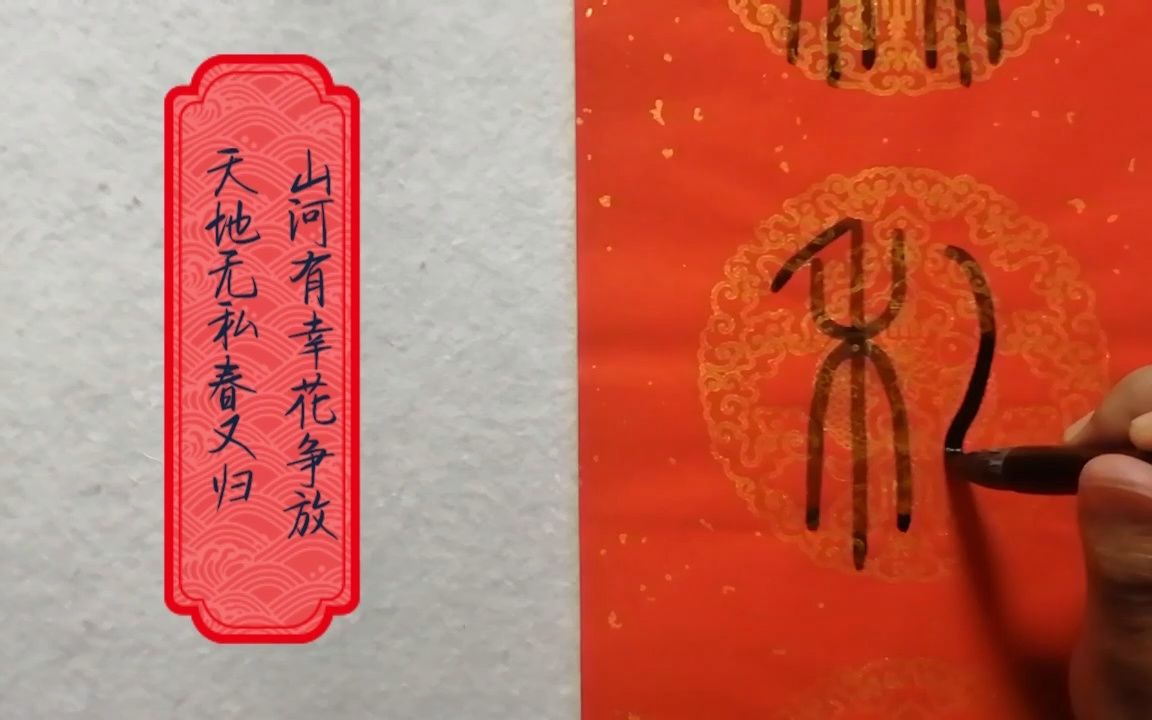 山河有幸花争放
天地无私春又归